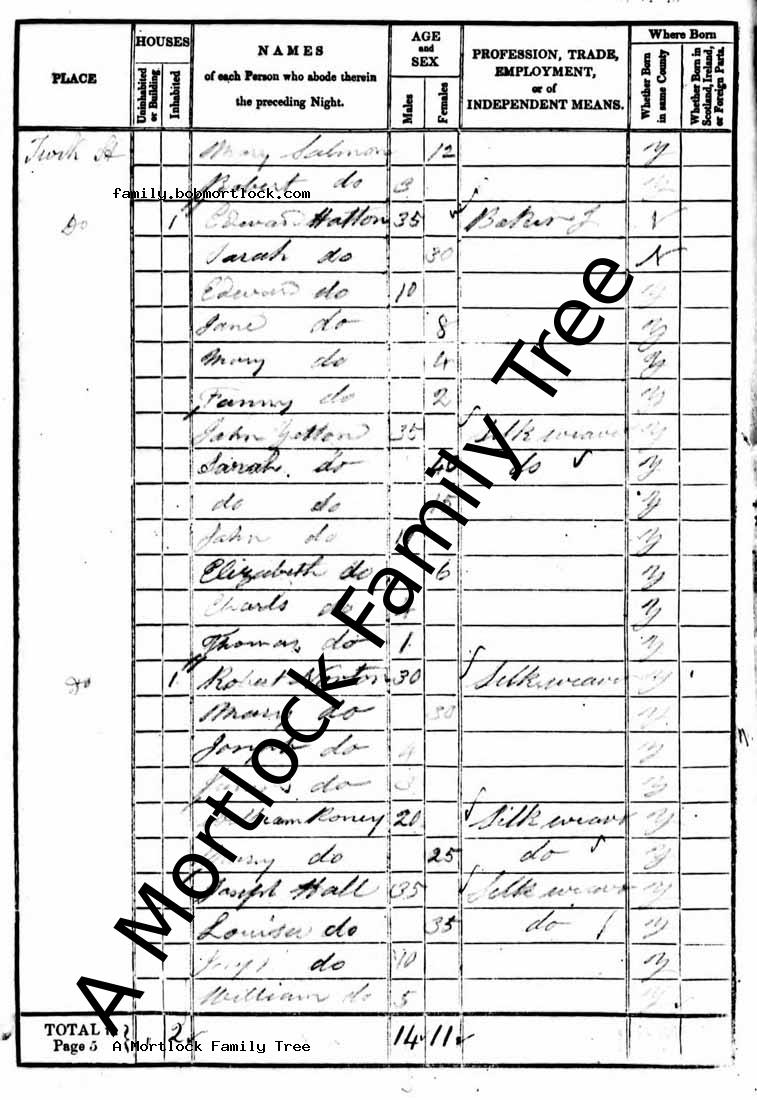 PLACE HOUSES NAMES of each Person who abode therein the preceding Night. AGE and SEX PROFESSION, TRADE, EMPLOYMENT, or of INDEPENDENT MEANS. Where Born
Uninhabited or Building Inhabited Males Females Whether Born in same County Whether Born in Scotland, Ireland, or Foreign Parts.
St Mary Salmon 12 y
Robert do 3
family.bobmortlock.com
Do 1 Edward Hatton 35 Baker J N
Sarah do 30 N
Edward do 10 y
Jane do 8 y
Mary do 4 y
Fanny do 2 y
John 35 Silk weaver y
Sarah do 40 do y
do do 15 y
John do y
Elizabeth do 6 y
Charls do y
Thomas do 1 y
Do 1 Robert Norton 30 Silk weaver y
Mary do 30 y
Joseph do y
do 3 y
William Roney 20 Silk weaver y
Mary do 25 do y
Joseph Hall 35 Silk weaver y
Louisa do 35 do y
do 10 y
William do 5 y
TOTAL in Page 5 2 14 11
A Mortlock Family Tree
A Mortlock Family Tree